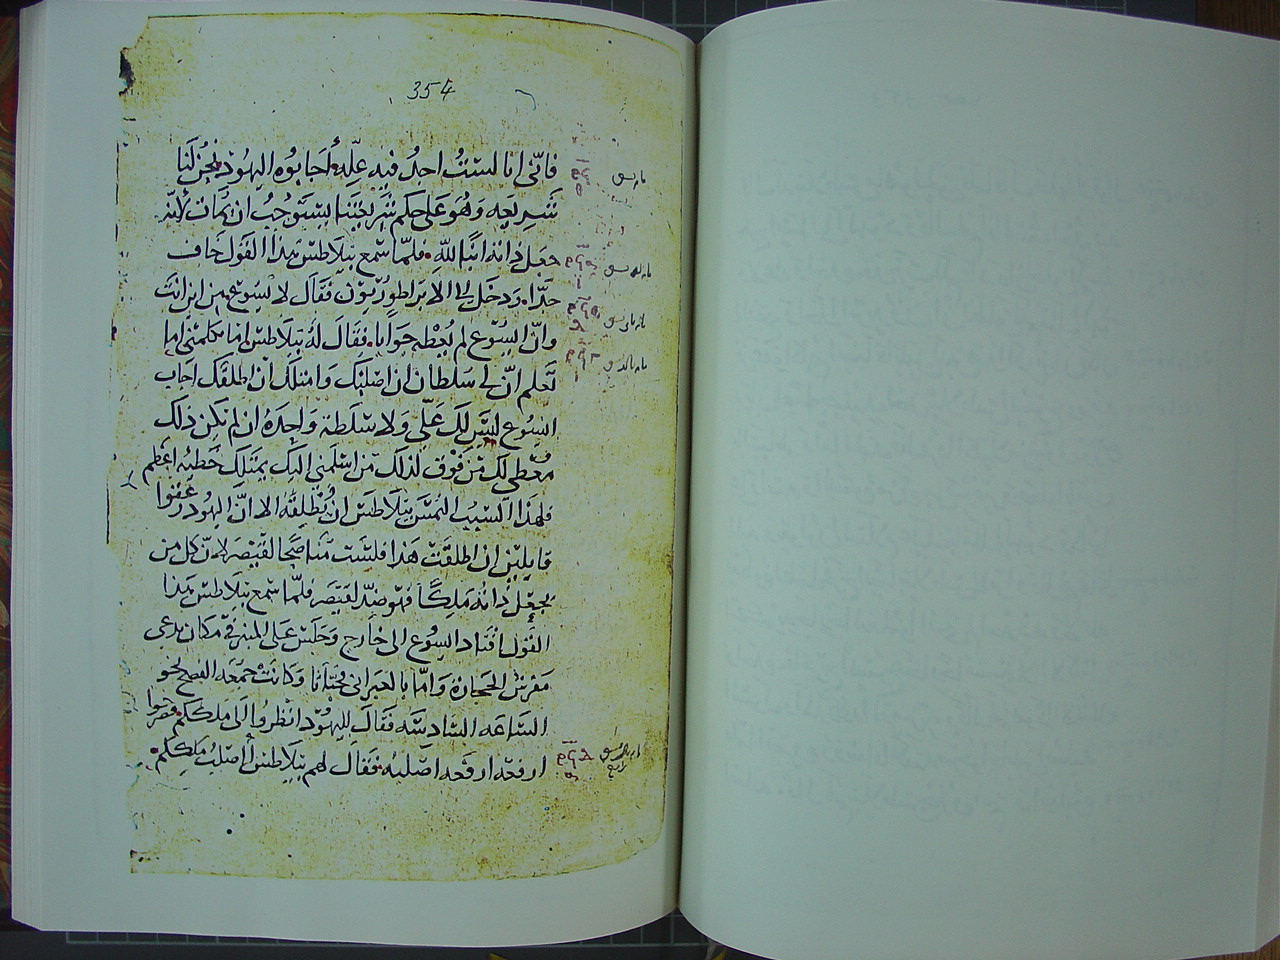 354
فانّني انا لستُ اجدُ فيه علّه أجابوه اليهود نحن لنا
شريعه وهو على حكم شريعتنا يستوجبُ ان يمات لانّه
جعل ذاته ابنًا للّهِ فلمّا سمع بيلاطس هذا القول خاف
جدّا ودخل الى الابراطوريون فقال لايسوع من اين انت
وانّ ايسوع لم يُعطه جوابا فقال لهُ بيلاطس اما تكلمني اما
تعلم انّ لي سلطان ان اصلبك وامتلك ان اطلقك اجاب
ايسوع ليس لك عليّ ولا سلطة واحدهُ ان لم تكن ذلك
مُعطى لك من فوق لذلك من اسلمني اليك يمتلك خطيه اعظم
فلهذا السبب التمس بيلاطس ان يُطلقهُ الا انّ اليهود زعقوا
قايلين ان اطلقت هذا فلست مُناصحًا لقيصر لانّ كل من
يجعل ذاته ملكًا فهو ضدّ لقيصر فلمّا سمع بيلاطس هذا
القول اقتاد ايسوع الى خارج وجلس على المنبر في مكان يدعى
مفرش الحجارة وامّا بالعبراني وكانت جمعه الفصح نحو
الساعه السادسه فقال لليهود انظروا الى ملككم فصرخوا
ارفعه ارفعه اصلبه فقال لهم بيلاطس أاصلبُ ملككم